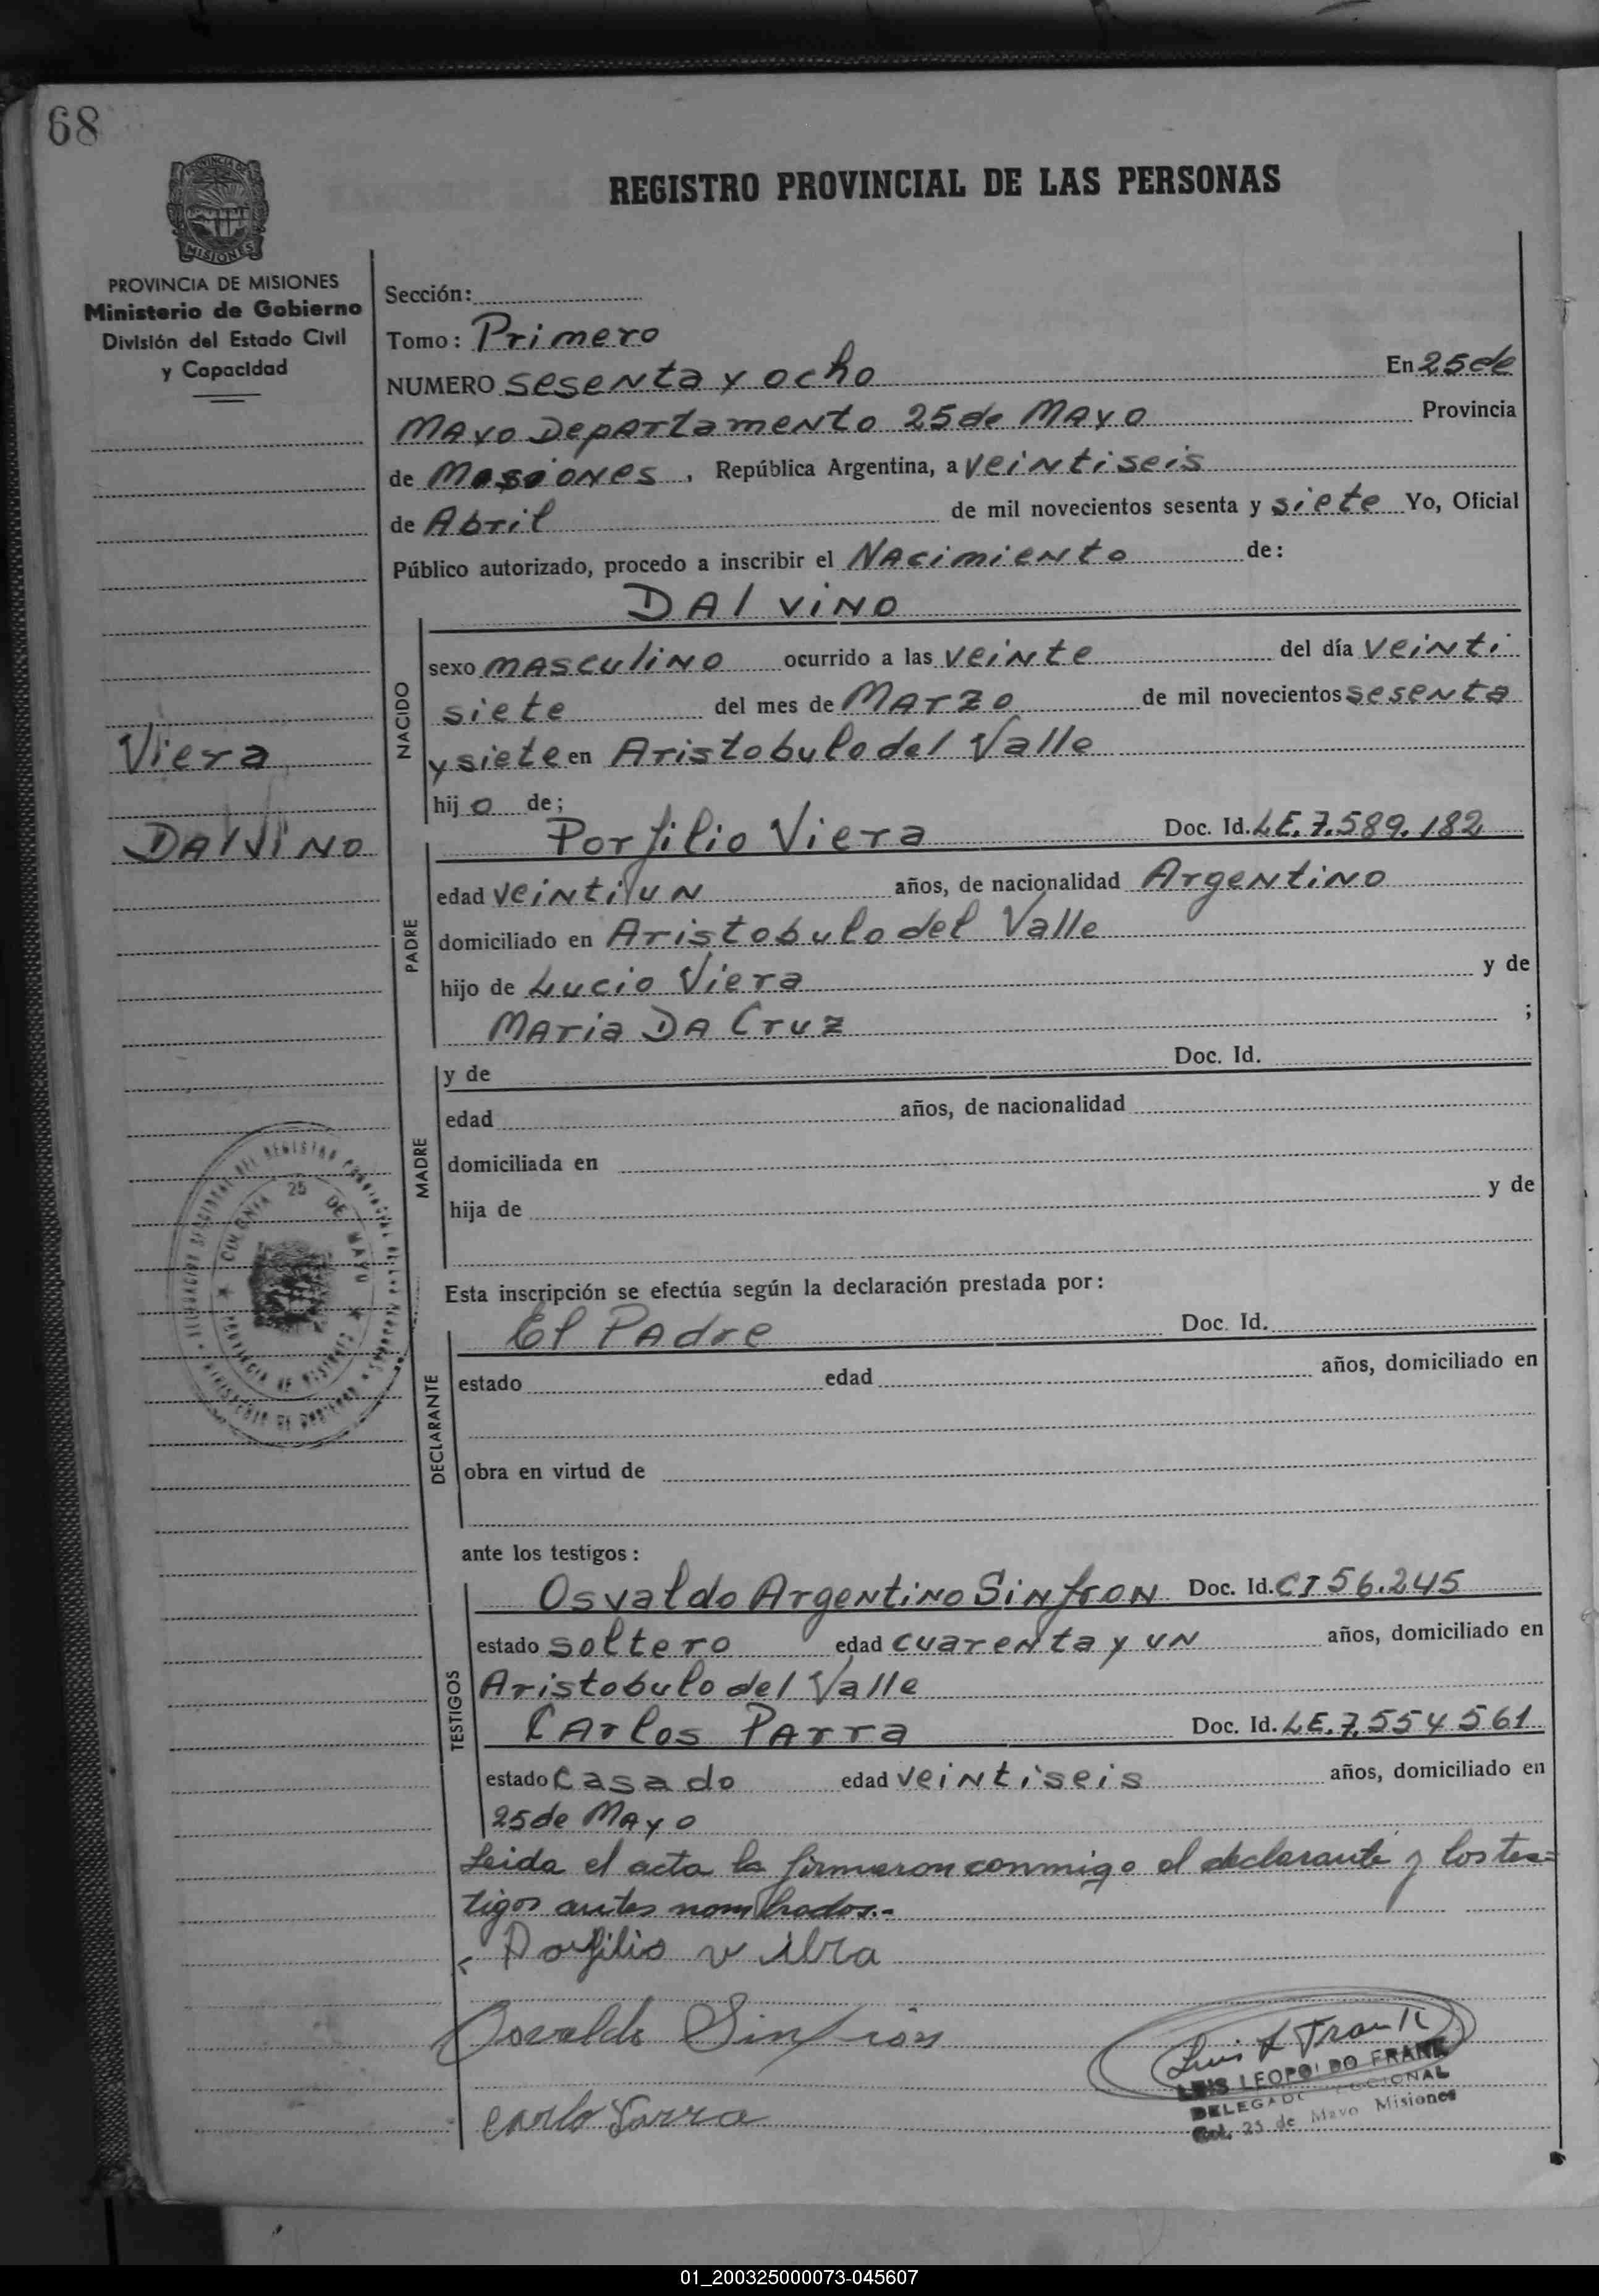 68
REGISTRO PROVINCIAL DE LAS PERSONAS
PROVINCIA DE MISIONES
MISIONES
PROVINCIA DE MISIONES
Ministerio de Gobierno
División del Estado Civil
y Capacidad
Sección:
Tomo: Primero
NUMERO sesenta y ocho En 25 de
Mayo Departamento 25 de Mayo Provincia
de Misiones, República Argentina, a veintiseis
de Abril de mil novecientos sesenta y siete Yo, Oficial
Público autorizado, procedo a inscribir el Nacimiento de:
DAlviNO
NACIDO
sexo masculino ocurrido a las veinte del día veinti
siete del mes de Marzo de mil novecientos sesenta
y siete en Aristobulo del Valle
Viera
DAlviNO
hijo de;
PADRE
Porfilio Viera Doc. Id. LE.7.589.182
edad veintiun años, de nacionalidad Argentino
domiciliado en Aristobulo del Valle
hijo de Lucio Viera y de
Maria DA Cruz ;
MADRE
y de Doc. Id.
edad años, de nacionalidad
domiciliada en
hija de y de
COLONIA 25 DE MAYO
PROVINCIA DE MISIONES
Esta inscripción se efectúa según la declaración prestada por:
DECLARANTE
El Padre Doc. Id.
estado edad años, domiciliado en
obra en virtud de
ante los testigos:
TESTIGOS
Osvaldo Argentino Sinfron Doc. Id. CI 56.245
estado soltero edad cuarenta y un años, domiciliado en
Aristobulo del Valle
Carlos Parra Doc. Id. LE.7.554561
estado casado edad veintiseis años, domiciliado en
25 de Mayo
Leida el acta la firmaron conmigo el declarante y los tes=
tigos antes nombrados.-
Porfilio
Osvaldo
Carlo Parra
Luis L Frank
LUIS LEOPOLDO FRANK
DELEGADO SECCIONAL
Col. 25 de Mayo Misiones
01_200325000073-045607